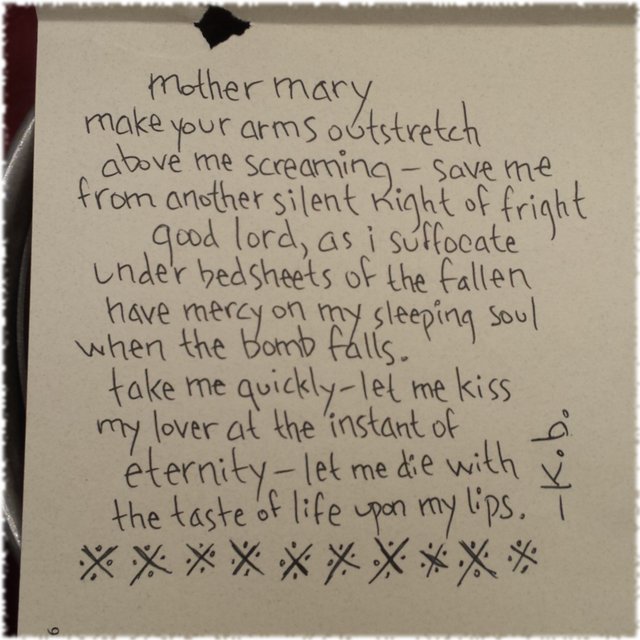 mother mary
make your arms outstretch
above me screaming – save me
from another silent night of fright
good lord, as i suffocate
under bedsheets of the fallen
have mercy on my sleeping soul
when the bomb falls.
take me quickly – let me kiss
my lover at the instant of
eternity – let me die with
the taste of life upon my lips.
– k.b.
6